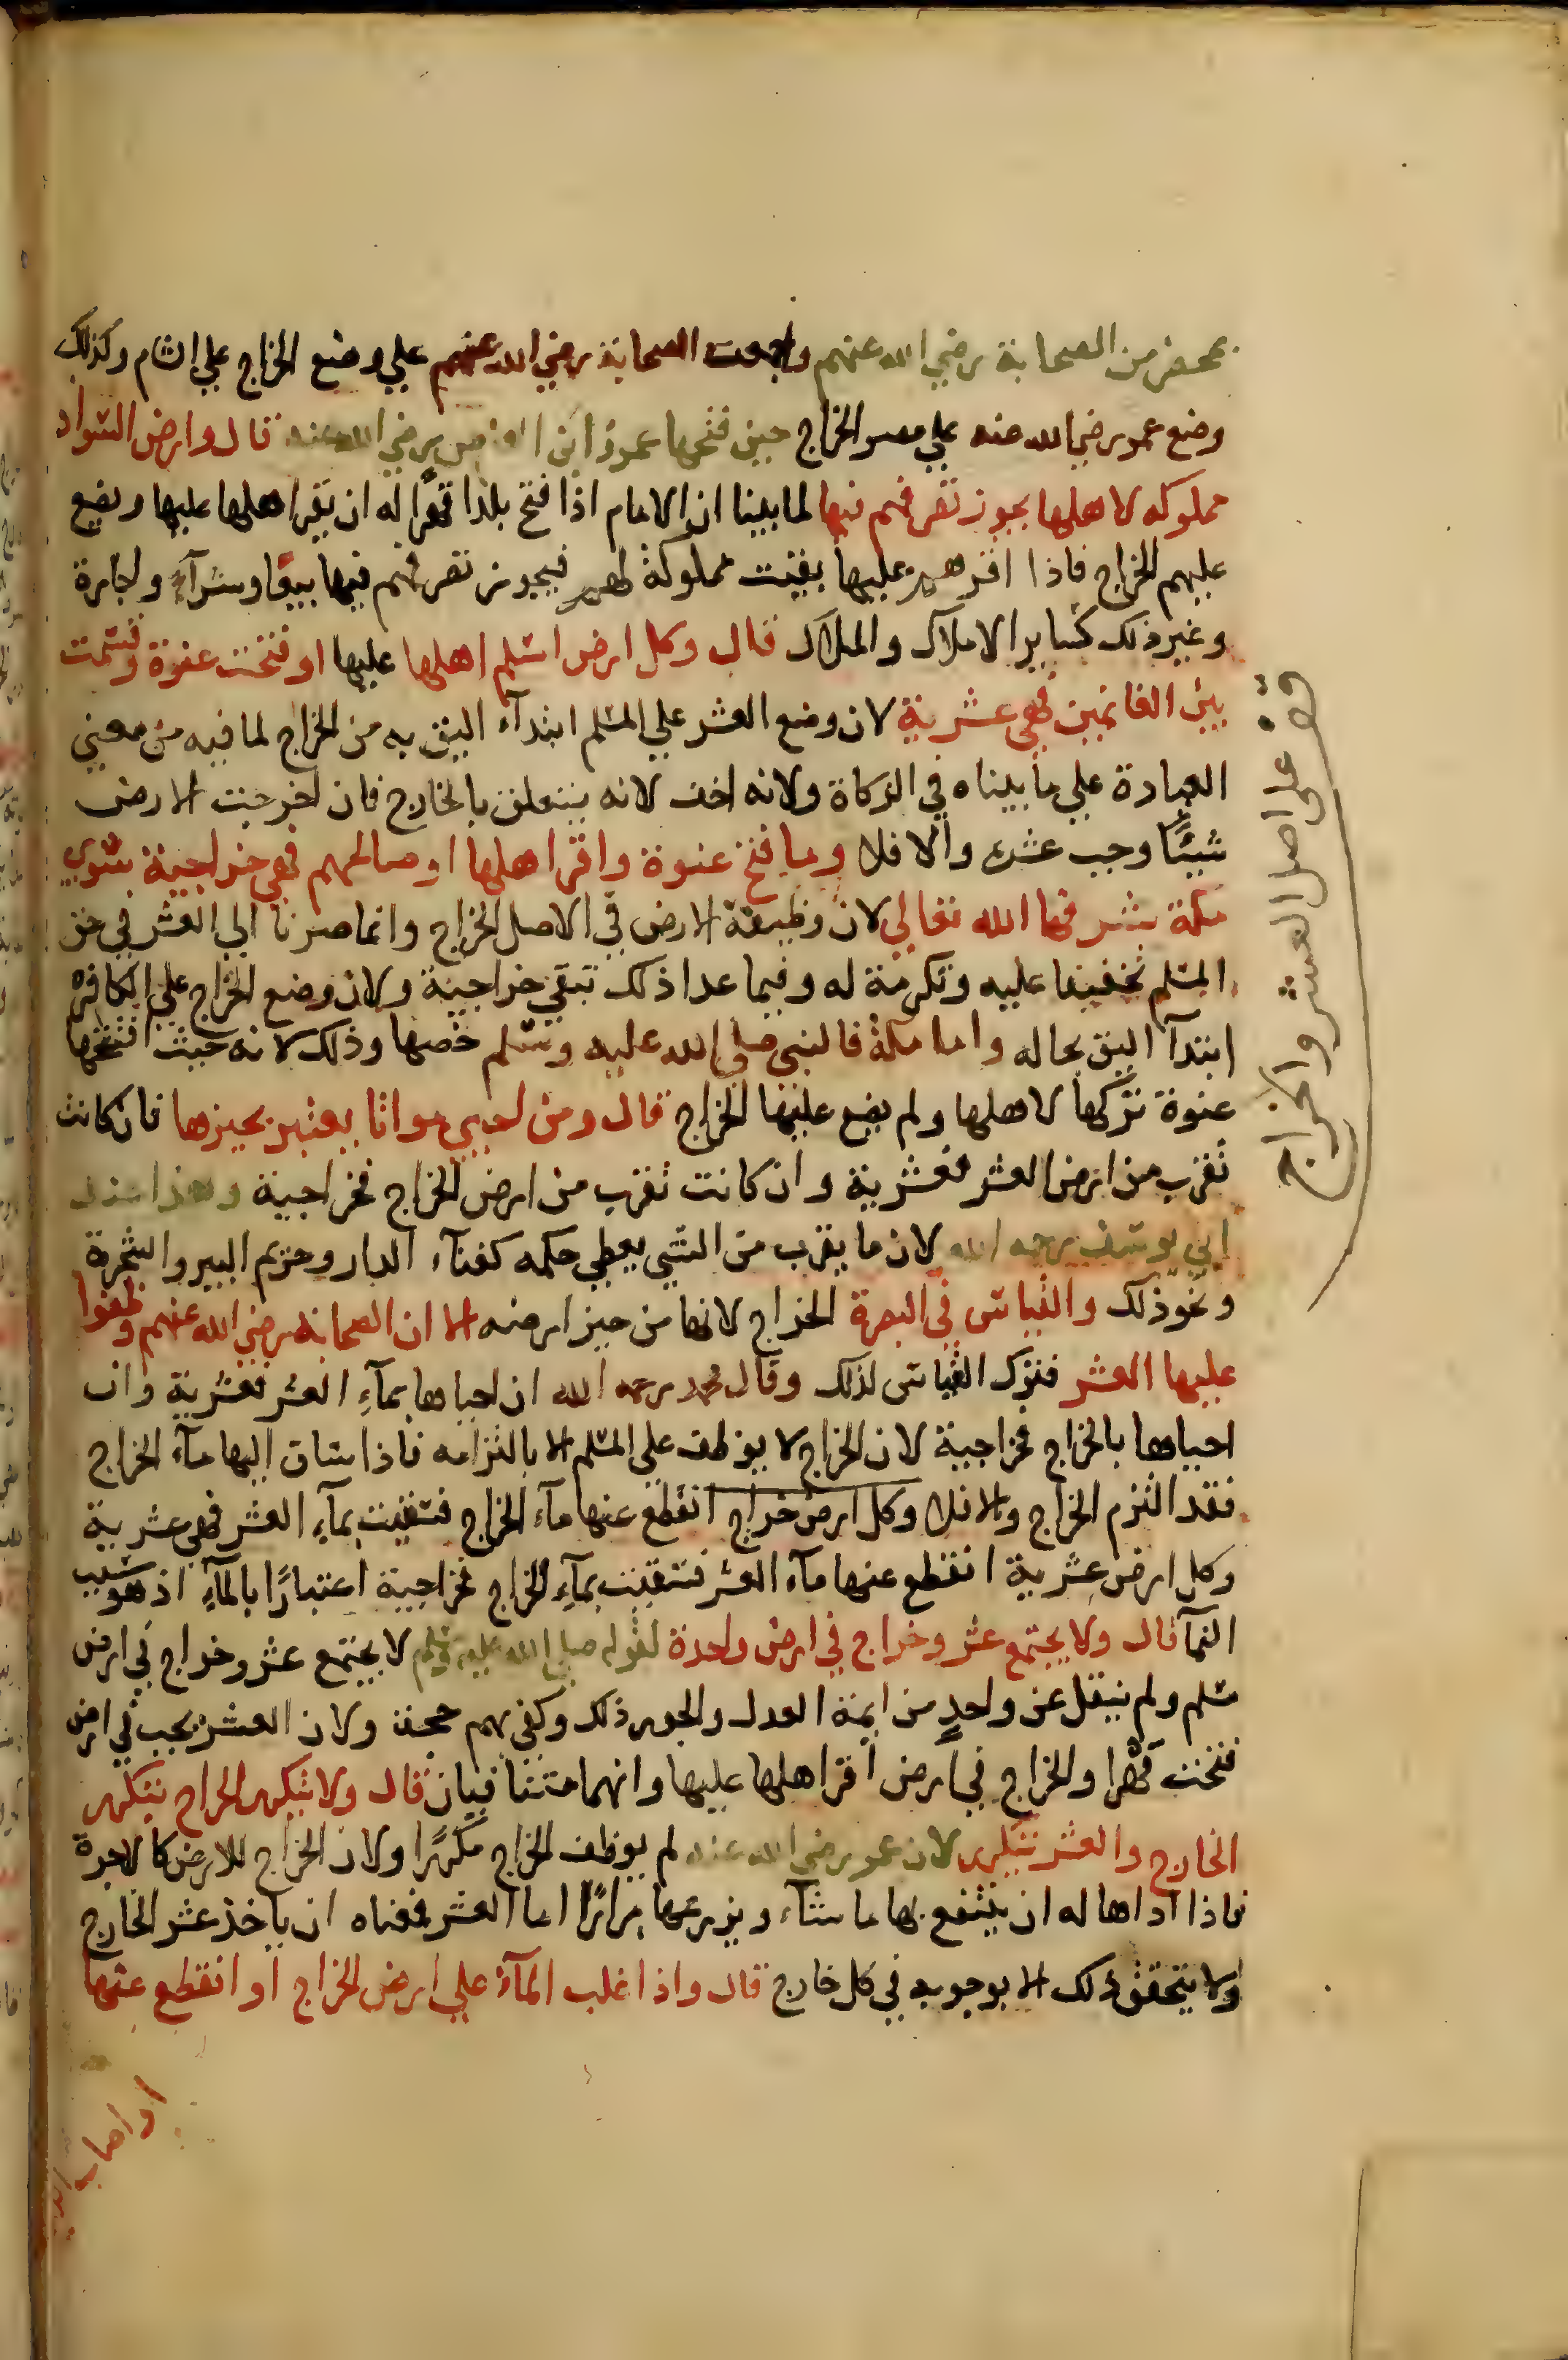 بمحضر من الصحابة رضي الله عنهم واجمعت الصحابة رضي الله عنهم علي وضع الخراج علي الشام وكذلك
وضع عمر رضي الله عنه علي مصر الخراج حين فتحها عمرو ابن العاص رضي الله عنه قال وارض السواد
مملوكه لاهلها يجوز تصرفهم فيها لما بينا ان الامام اذا فتح بلدا قهرا له ان يقر اهلها عليها ويضع
عليهم الخراج فاذا اقرهم عليها بقيت مملوكة لهم فيجوز تصرفهم فيها بيعا وشرآء واجارة
وغير ذلك كساير الاملاك والملاك قال وكل ارض اسلم اهلها عليها او فتحت عنوة وقسمت
بين الغانمين فهي عشرية لان وضع العشر علي المسلم ابتدآء اليق به من الخراج لما فيه من معني
العبادة علي ما بيناه في الزكاة ولانه اخف لانه يتعلق بالخارج فان اخرجت الارض
شيئا وجب عشره والا فلا وما فتح عنوة واقر اهلها او صالحهم فهي خراجية سوي
مكة شرفها الله تعالي لان وظيفة الارض في الاصل الخراج وانما صرنا الي العشر في حق
المسلم تخفيفا عليه وتكرمة له وفيما عدا ذلك تبقي خراجية ولان وضع الخراج علي الكافر
ابتدآ اليق بحاله واما مكة فالنبي صلي الله عليه وسلم خصها وذلك لانه حيث افتتحها
عنوة تركها لاهلها ولم يضع عليها الخراج قال ومن احيي مواتا يعتبر بحيزها فان كانت
تقرب من ارض العشر فعشرية وان كانت تقرب من ارض الخراج فخراجية وهذا عند
ابي يوسف رحمه الله لان ما يقرب من الشي يعطي حكمه كفنآء الدار وحريم البير والشجرة
ونحو ذلك والقياس في البصرة الخراج لانها من حيز ارضه الا ان الصحابة رضي الله عنهم وظفوا
عليها العشر فترك القياس لذلك وقال محمد رحمه الله ان احياها بمآء العشر فعشرية وان
احياها بالخراج فخراجية لان الخراج لا يوظف علي المسلم الا بالتزامه فاذا ساق اليها مآء الخراج
فقد التزم الخراج والا فلا وكل ارض خراج انقطع عنها مآء الخراج فسقيت بمآء العشر فهي عشرية
وكل ارض عشرية انقطع عنها مآء العشر فسقيت بمآء الخراج فخراجية اعتبارًا بالمآء اذ هو سبب
النمآ قال ولا يجتمع عشر وخراج في ارض واحدة لقوله صلي الله عليه وسلم لا يجتمع عشر وخراج في ارض
مسلم ولم ينقل عن واحدٍ من ايمة العدل والجور ذلك وكفي بهم حجة ولان العشر يجب في ارض
فتحت قهرا والخراج في ارض اقر اهلها عليها وانهما متنافيان قال ولا يتكرر الخراج بتكرر
الخارج والعشر يتكرر لان عمر رضي الله عنه لم يوظف الخراج مكررًا ولان الخراج للارض كالاجرة
فاذا اداها له ان ينتفع بها ما شآء ويزرعها مرارًا اما العشر فمعناه ان ياخذ عشر الخارج
ولا يتحقق ذلك الا بوجوبه في كل خارج قال واذا غلب المآء علي ارض الخراج او انقطع عنها
او اصاب
قف على اصل العشر والخراج